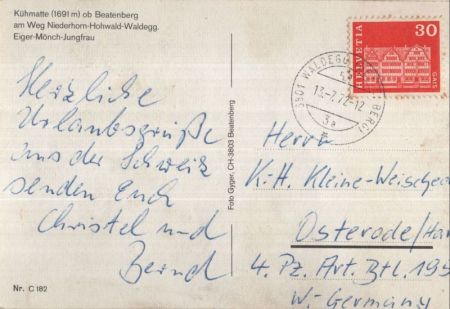 Kühmatte (1691 m) ob Beatenberg
am Weg Niederhorn-Hohwald-Waldegg.
Eiger-Mönch-Jungfrau
Herzliche
Urlaubsgrüße
aus der Schweiz
senden Euch
Christel und
Bernd
Nr. C 182
Foto Gyger, CH-3803 Beatenberg
30
HELVETIA
GAIS
3801 WALDEGG
13.-7.72-12
3a
Herrn
K.-H. Kleine-Weische
Osterode/Har
4. Pz. Art. Btl. 195
W.-Germany